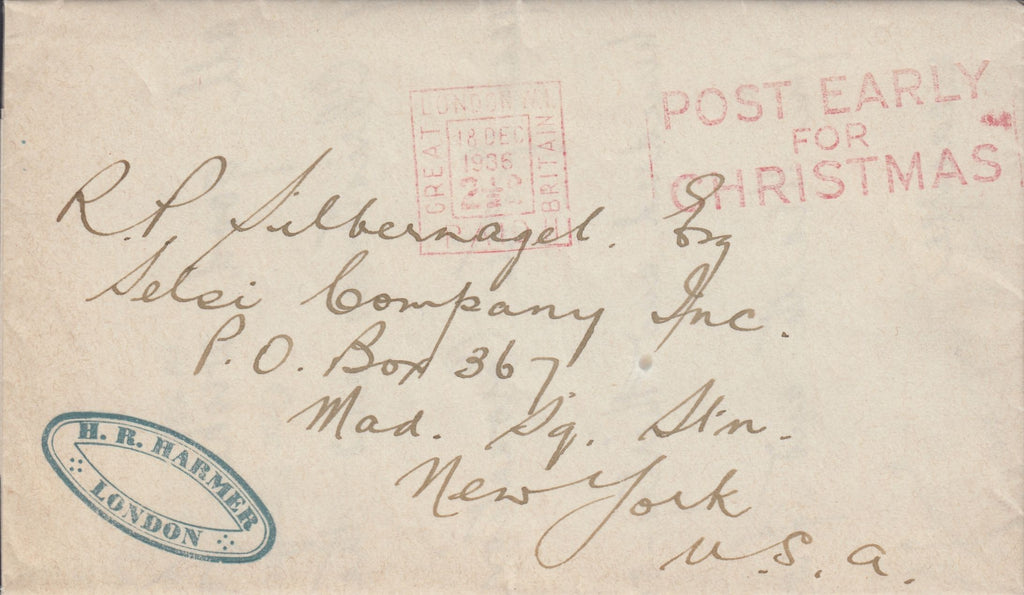 POST EARLY
FOR
CHRISTMAS
LONDON W.1.
GREAT
18 DEC
1936
BRITAIN
PAID
R. P. Silbernagel. Esq
Selsi Company Inc.
P. O. Box 367
Mad. Sq. Stn.
New York
U. S. A.
H. R. HARMER
LONDON